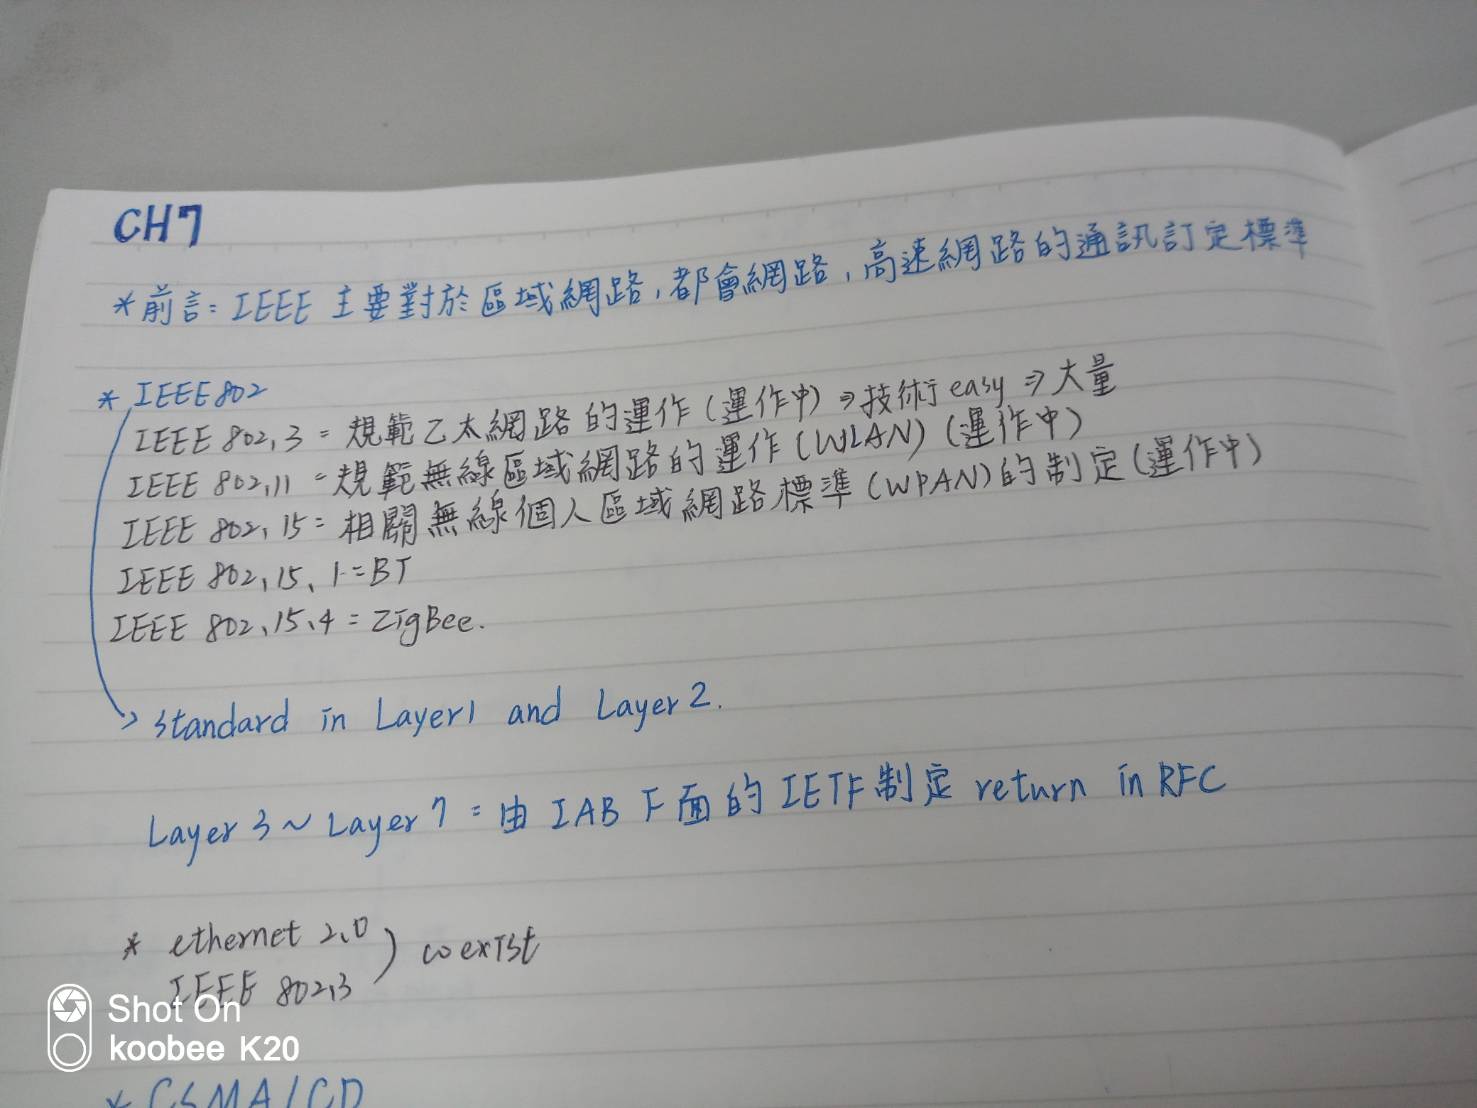 CH7
*前言: IEEE 主要對於區域網路,都會網路,高速網路的通訊訂定標準
* IEEE802
IEEE 802.3 = 規範乙太網路的運作(運作中)⇒技術easy⇒大量
IEEE 802.11 = 規範無線區域網路的運作(WLAN)(運作中)
IEEE 802.15 = 相關無線個人區域網路標準(WPAN)的制定(運作中)
IEEE 802.15.1=BT
IEEE 802.15.4 = ZigBee.
> standard in Layer1 and Layer2.
Layer3~Layer7 = 由IAB下面的IETF制定 return in RFC
* ethernet 2.0
IEEE 802.3 ) coexist
* CSMA/CD
Shot On
koobee K20